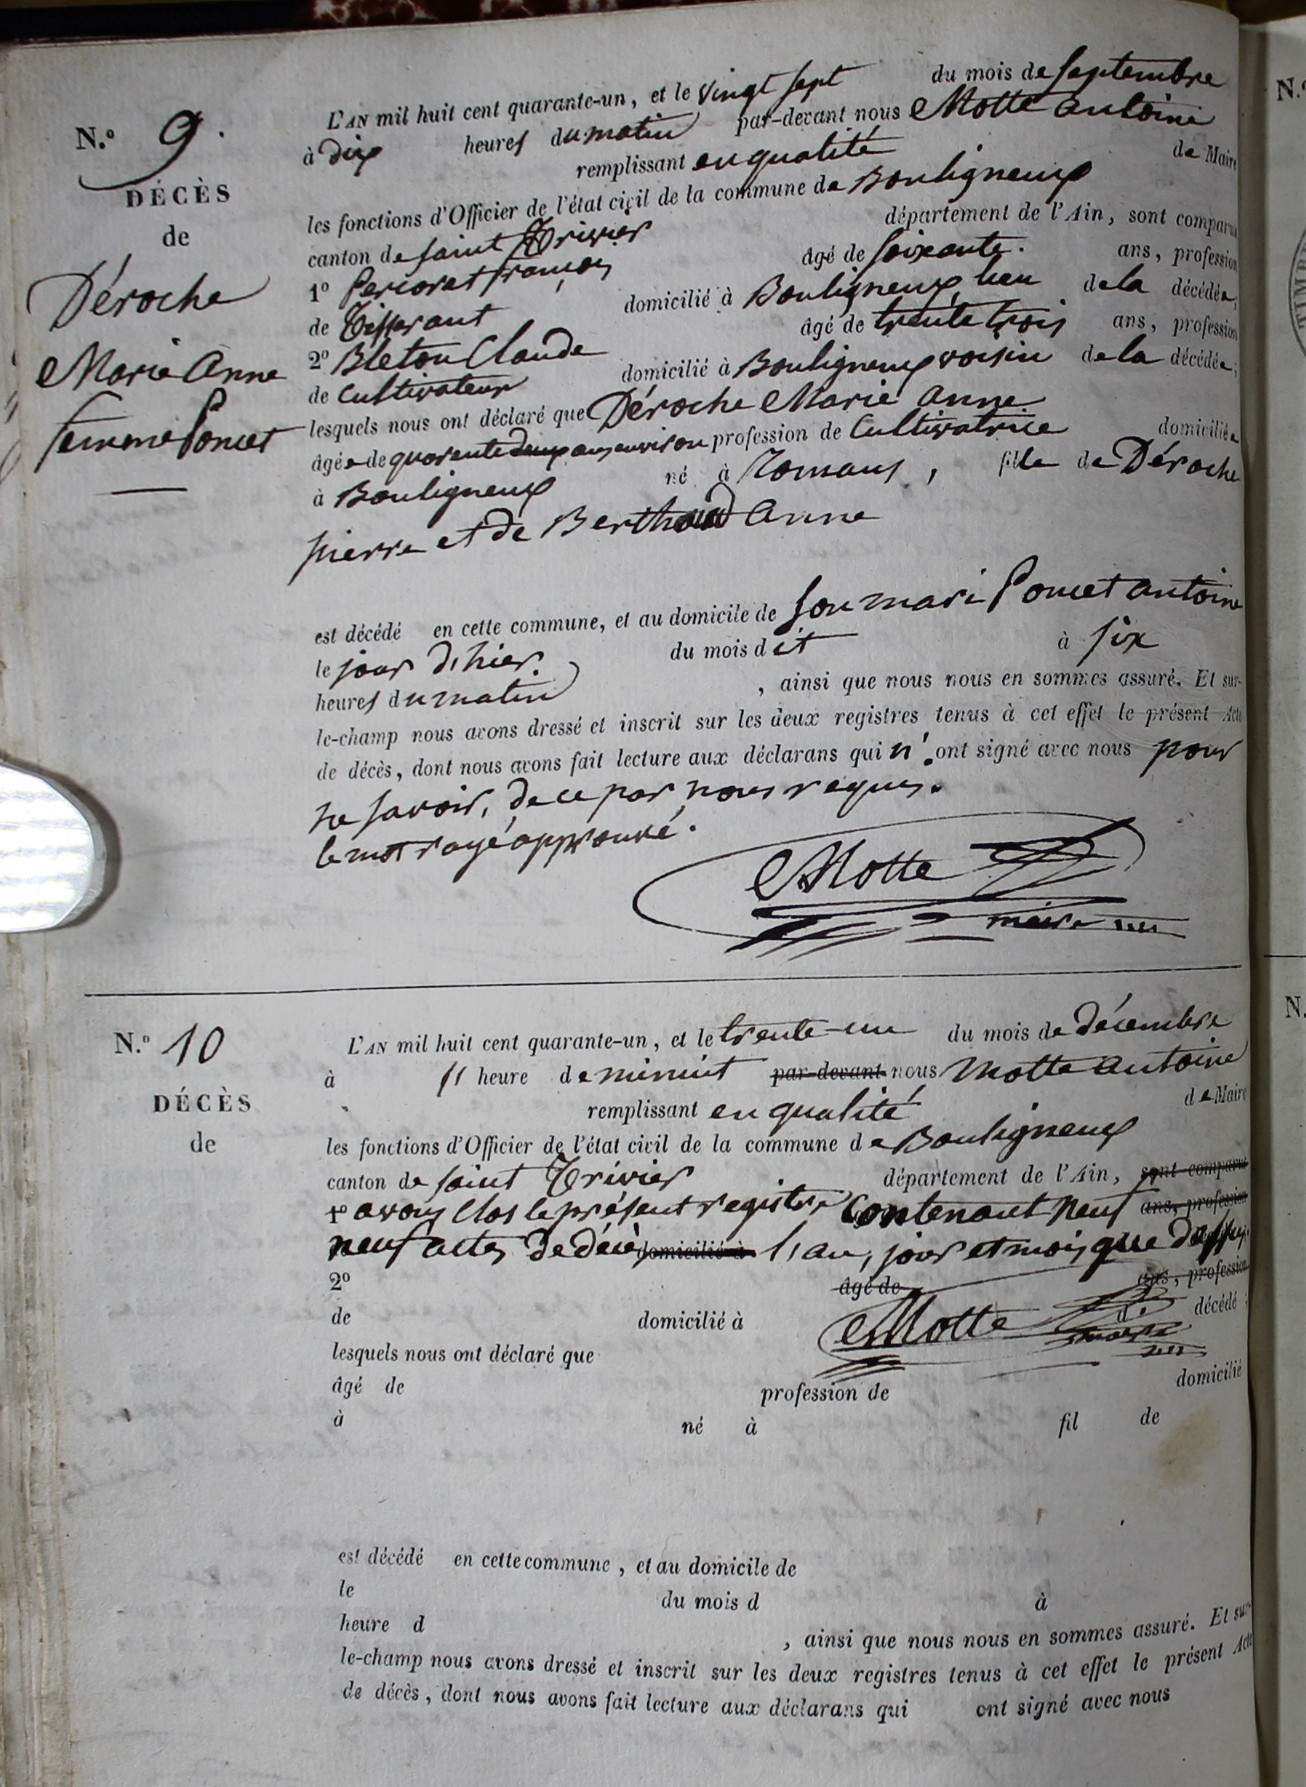 N.º 9.
DÉCÈS
de
Déroche
Marie Anne
femme Poncet
L'AN mil huit cent quarante-un, et le vingt sept du mois de Septembre
à dix heures du matin par-devant nous Motte antoine
remplissant en qualité de Maire
les fonctions d'Officier de l'état civil de la commune de Bouligneux
canton de Saint Trivier département de l'Ain, sont comparus
1º françois âgé de soixante. ans, profession
de Tisserant domicilié à Bouligneux lieu de la décédée;
2º Bleton Claude âgé de trente trois ans, profession
de Cultivateur domicilié à Bouligneux voisin de la décédée;
lesquels nous ont déclaré que Déroche Marie Anne
âgée de quarente deux ans environ profession de Cultivatrice domiciliée
à Bouligneux né à Romans, fille de Déroche
pierre et de Berthoud Anne
est décédé en cette commune, et au domicile de son mari Poncet antoine
le jour d'hier. du mois dit à six
heures du matin, ainsi que nous nous en sommes assuré. Et sur-
le-champ nous avons dressé et inscrit sur les deux registres tenus à cet effet le présent Acte
de décès, dont nous avons fait lecture aux déclarans qui n'ont signé avec nous pour
ne savoir, de ce par nous requis.
le mot rayé approuvé.
Motte
maire
N.º 10
DÉCÈS
de
L'AN mil huit cent quarante-un, et le trente-un du mois de décembre
à 11 heure de minuit par-devant nous Motte antoine
remplissant en qualité de Maire
les fonctions d'Officier de l'état civil de la commune de Bouligneux
canton de saint Trivier département de l'Ain, sont comparus
1º avons Clos le présent registre Contenant neuf ans, profession
neuf actes de décès domicilié à l'an, jour et mois que dessus.
2º âgé de ans, profession
de domicilié à d décédé;
Motte
maire
lesquels nous ont déclaré que
âgé de profession de domicilié
à né à fil de
est décédé en cette commune, et au domicile de
le du mois d à
heure d , ainsi que nous nous en sommes assuré. Et sur-
le-champ nous avons dressé et inscrit sur les deux registres tenus à cet effet le présent Acte
de décès, dont nous avons fait lecture aux déclarans qui ont signé avec nous
N.º
N.